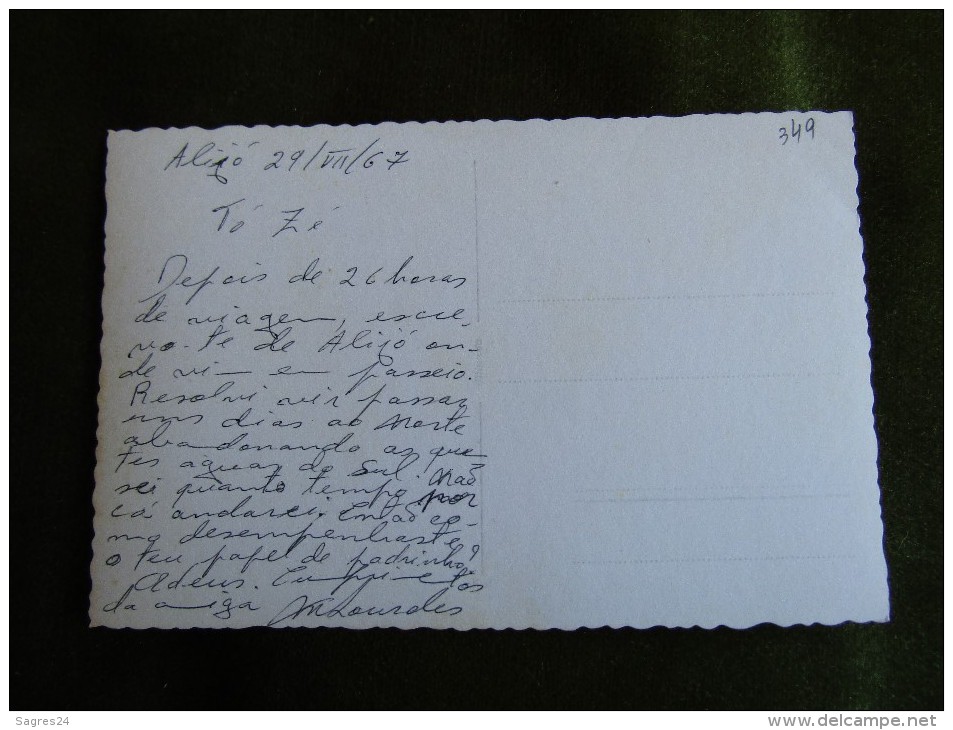 349
Alijó 29/VII/67
Tó Zé
Depois de 26 horas
de viagem, escre-
vo-te de Alijó on-
de vim em passeio.
Resolvi vir passar
uns dias ao Norte
abandonando as quen-
tes águas do Sul. Não
sei quanto tempo por
cá andarei. Então co-
mo desempenhaste
o teu papel de padrinho?
Adeus. Cumprimentos
da amiga MLourdes
Sagres24
www.delcampe.net